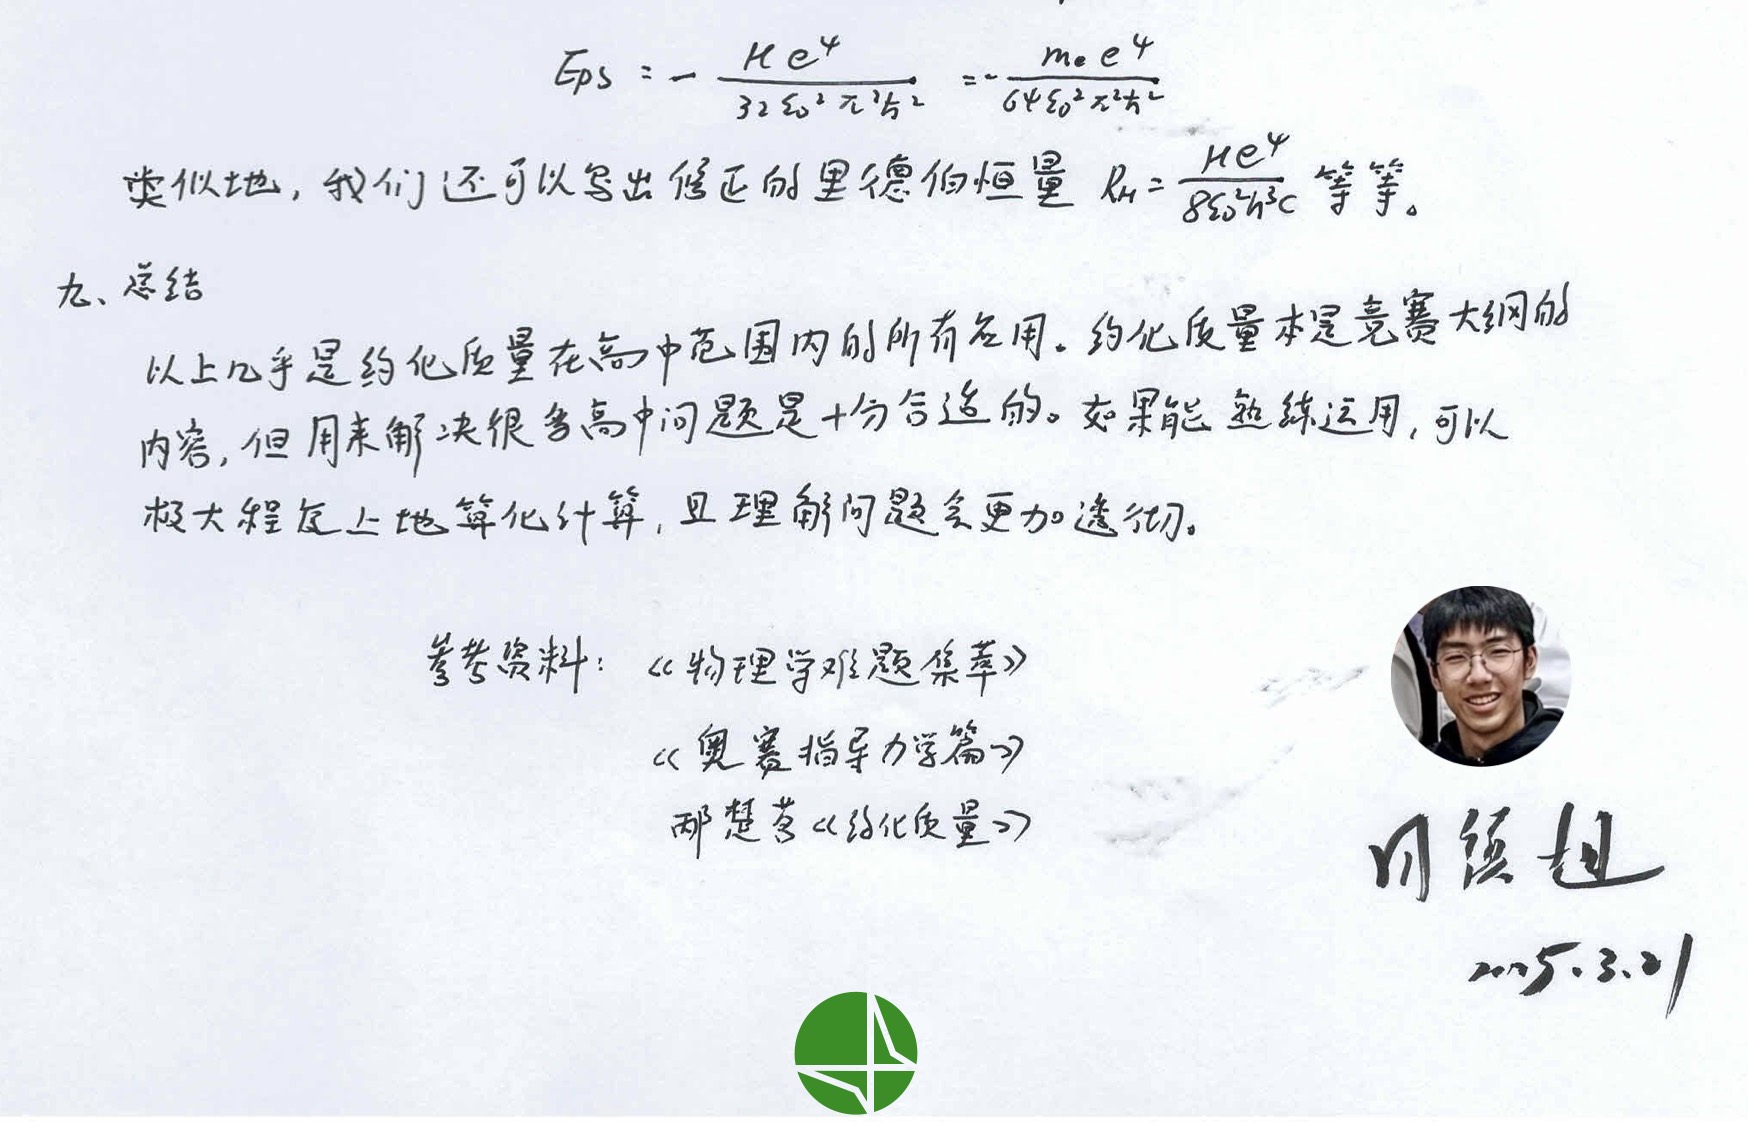 Eps = - μe⁴ / 32ε₀²π²ħ² = - mₑe⁴ / 64ε₀²π²ħ²
类似地，我们还可以写出修正的里德伯恒量 R_H = μe⁴ / 8ε₀²h³c 等等。
九、总结
以上几乎是约化质量在高中范围内的所有应用。约化质量本是竞赛大纲的
内容，但用来解决很多高中问题是十分合适的。如果能熟练运用，可以
极大程度上地算化计算，且理解问题会更加透彻。
参考资料：《物理学难题集萃》
《奥赛指导力学篇》
邴楚茗《约化质量》
2025.3.21